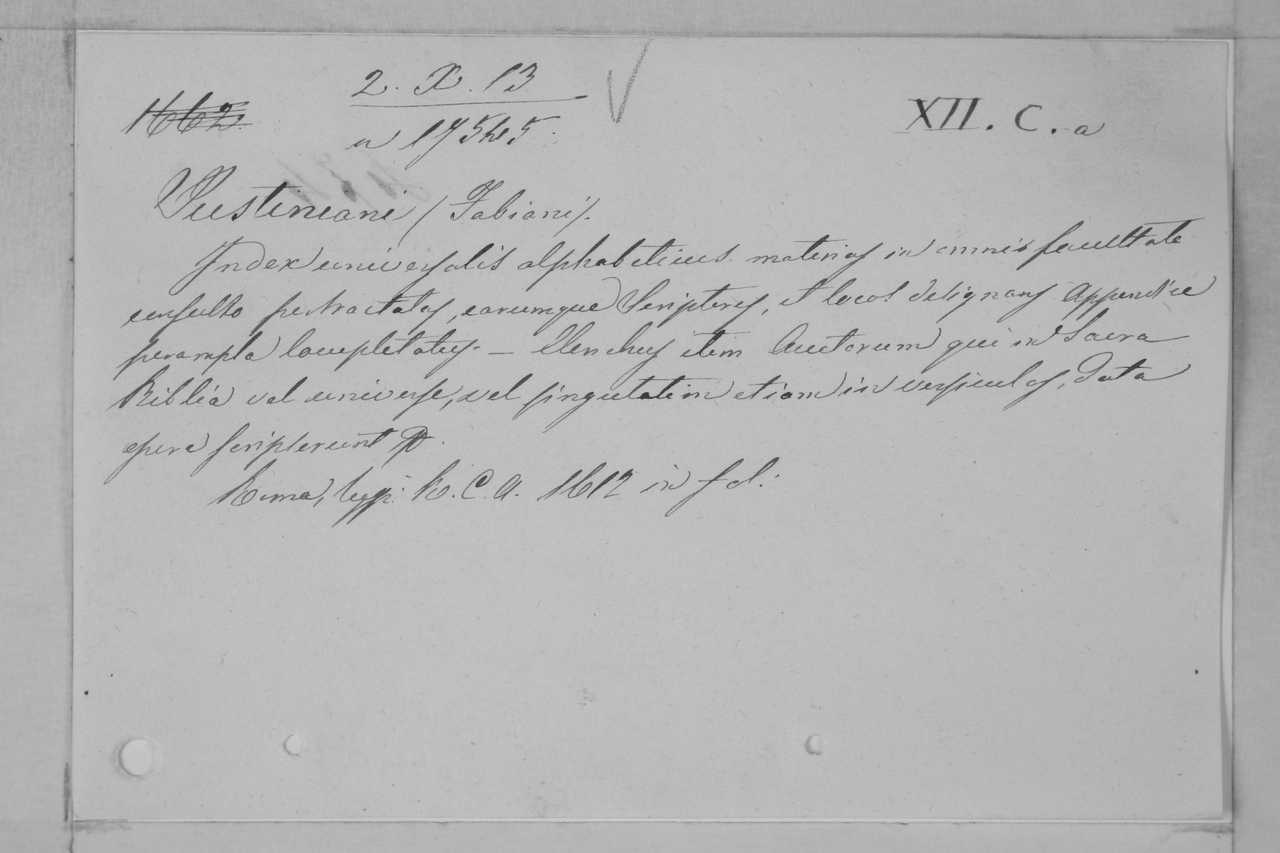 1662
2. X. 13
n 17545.
XII. C. a
Justiniani (Fabiani).
Index universalis alphabeticus materias in omnis facultate
consulto pertractatas, earumque Scriptores, et locos designans Appendice
perampla locupletatus. — Elenchus item Auctorum qui in Sacra
Biblia vel universe, vel singulatim etiam in versiculos, data
opera scripserunt
Romæ, typ: R. C. A. 1612 in fol: